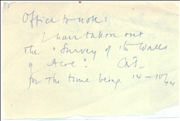 Office to note:
I have taken out
the "Survey of the Walls
of Acre"
for the time being 14-10/44